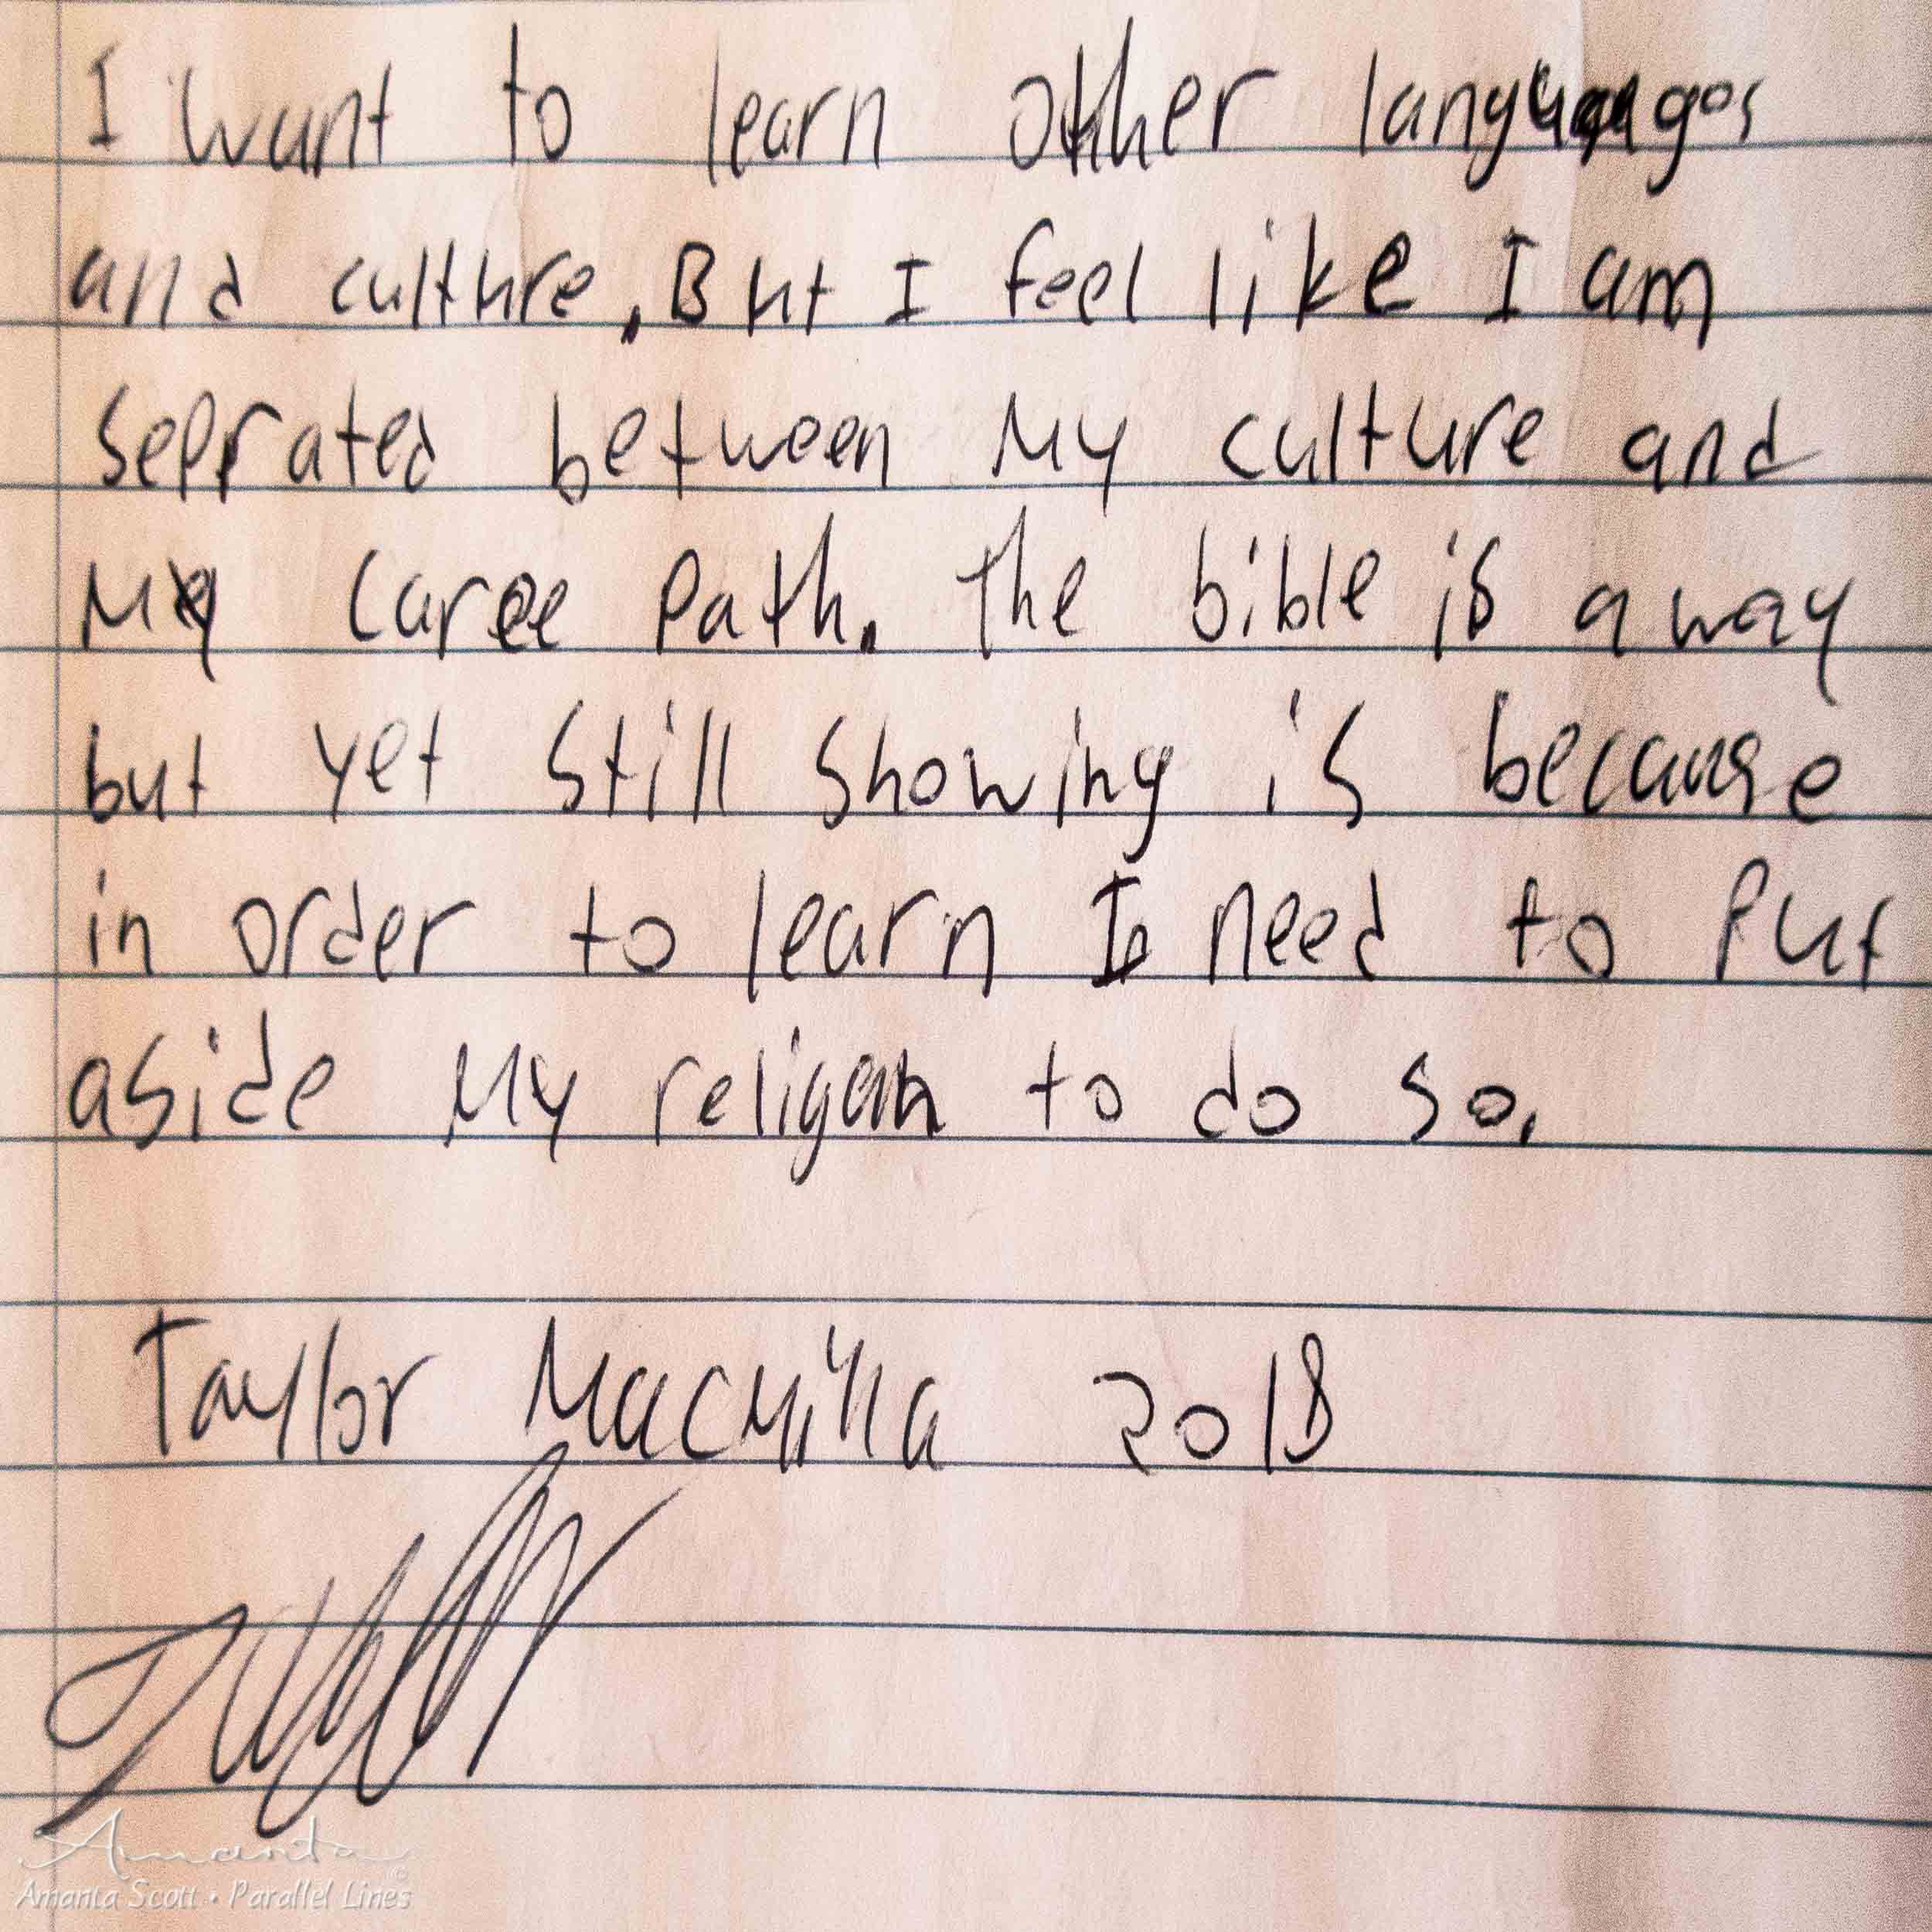 I want to learn other languages
and culture. But I feel like I am
seprated between My culture and
My caree path. The bible is away
but yet still showing is because
in order to learn I need to put
aside My religon to do so.
Taylor Macmilla 2018
Amanta
Amanta Scott • Parallel Lines
©